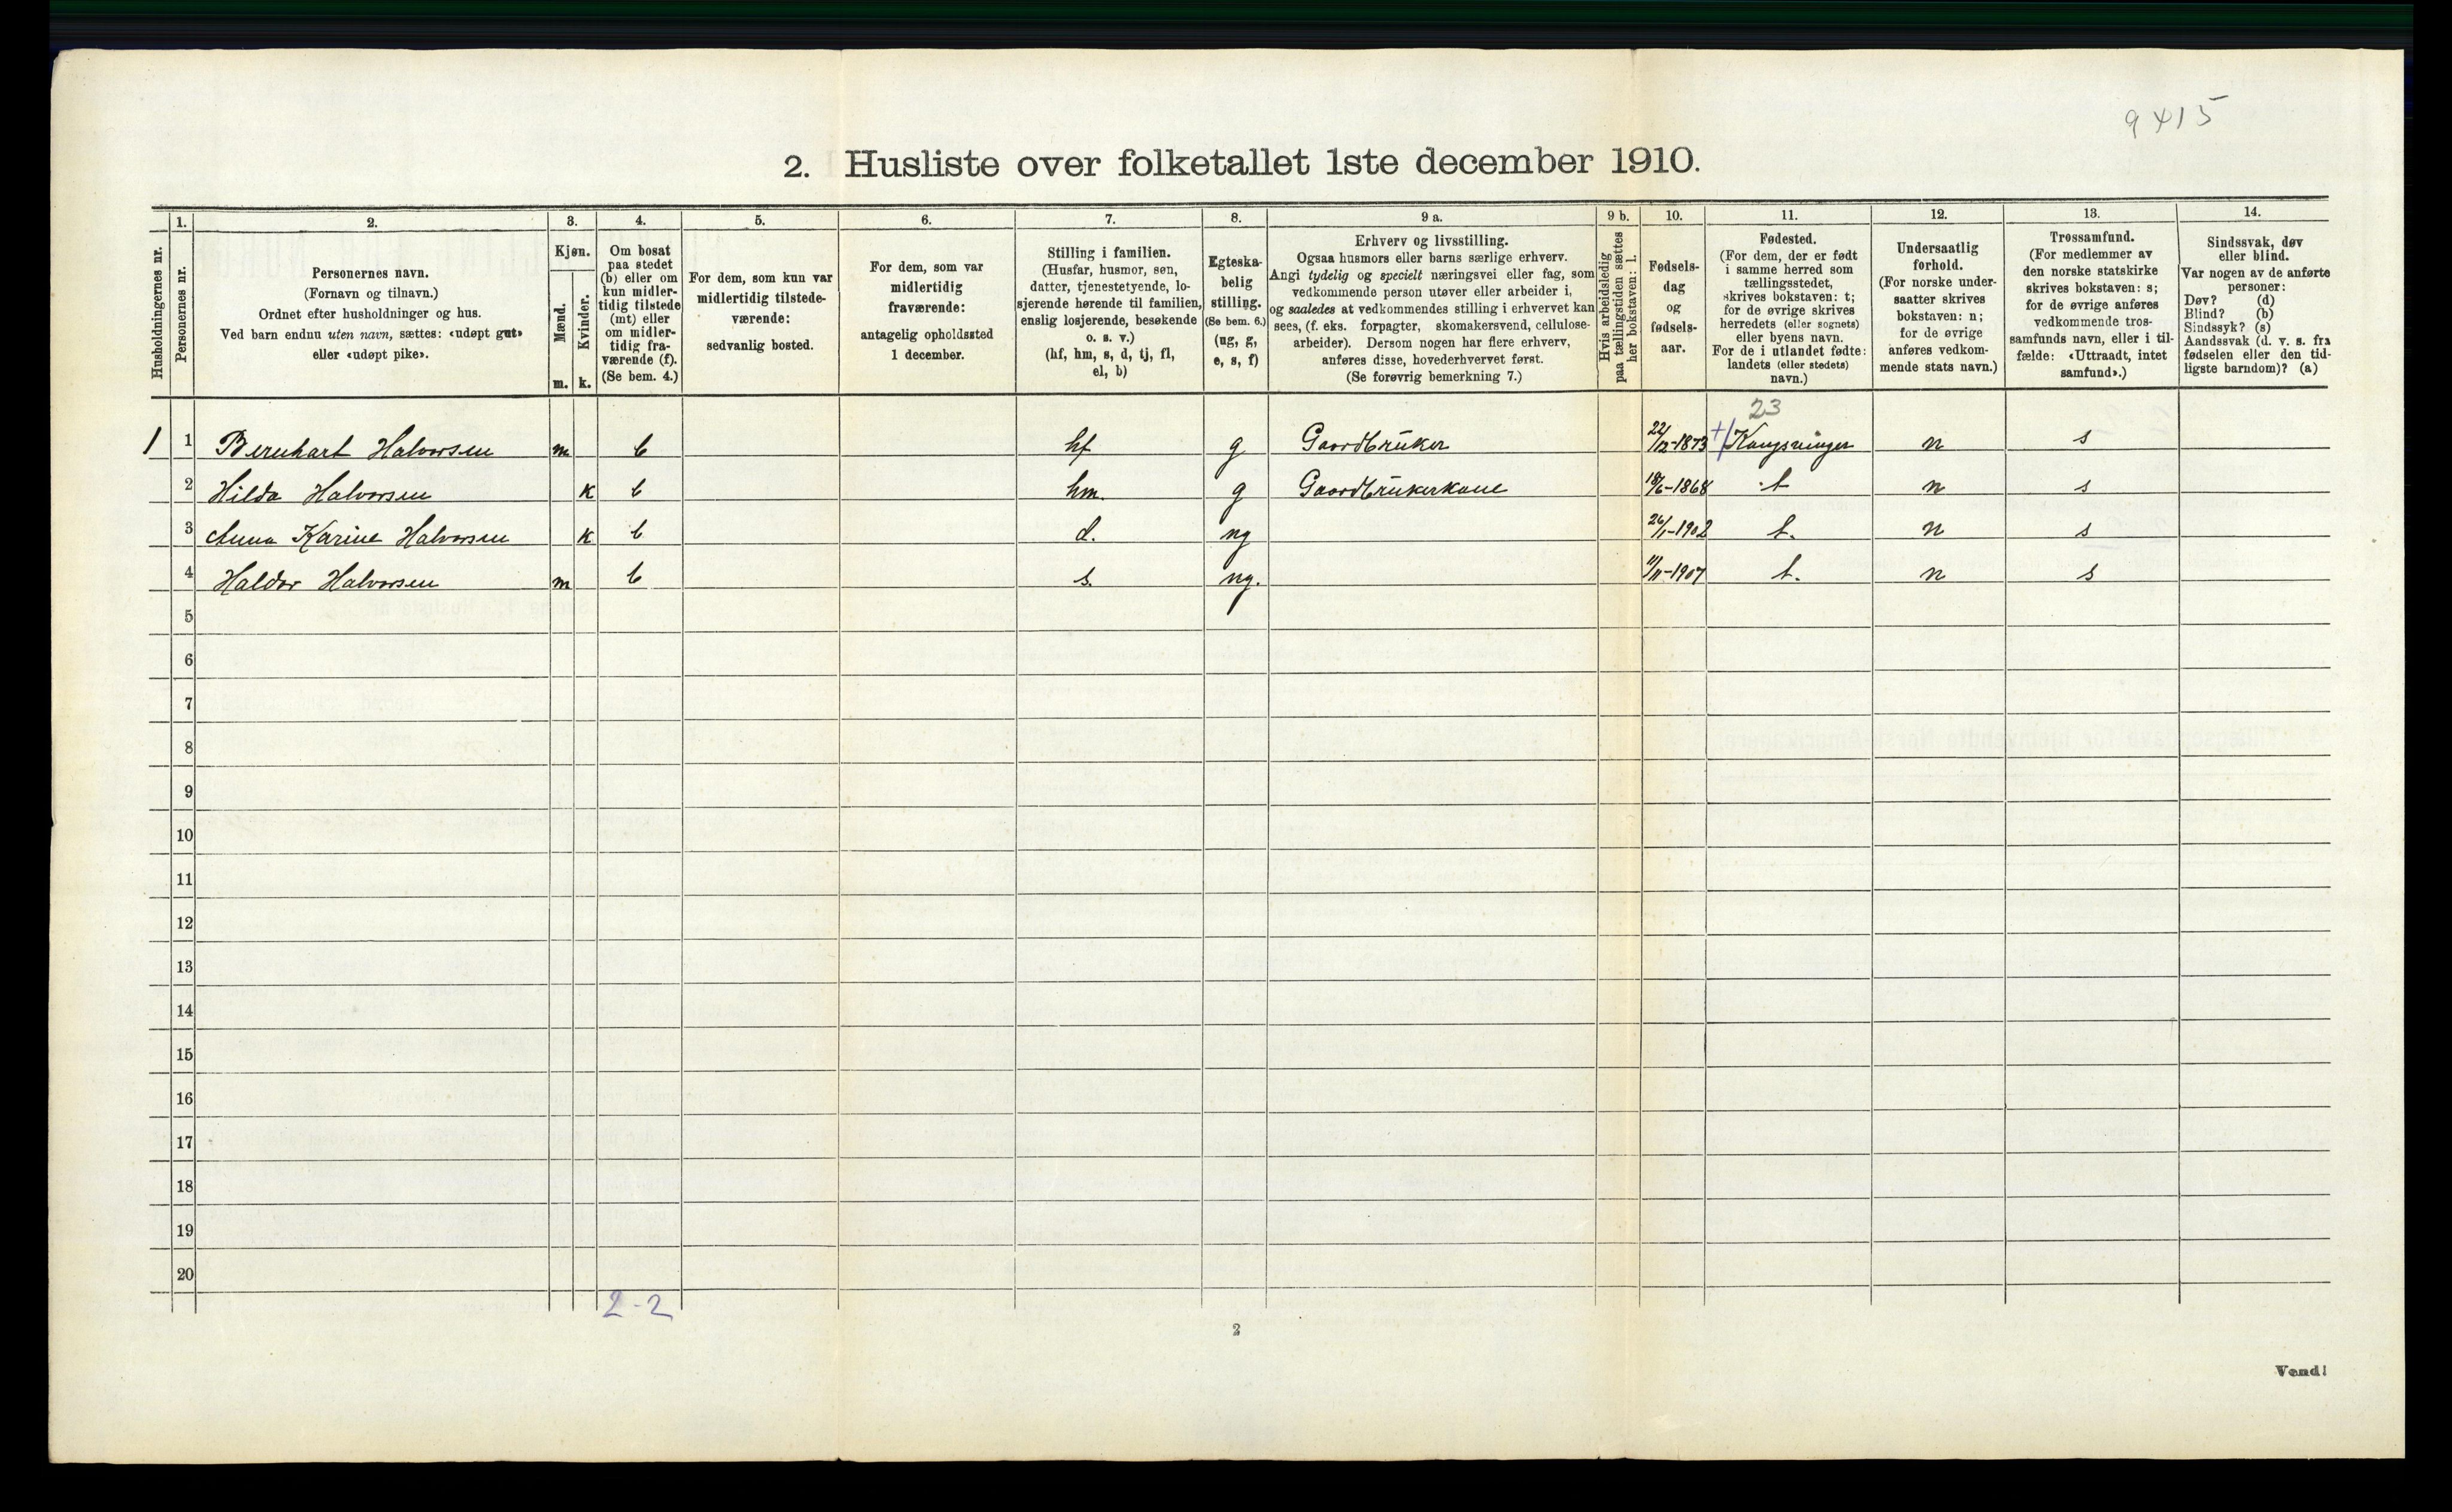 9415
2. Husliste over folketallet 1ste december 1910.
Husholdningernes nr.
1.
Personernes nr.
2.
Personernes navn.
(Fornavn og tilnavn.)
Ordnet efter husholdninger og hus.
Ved barn endnu uten navn, sættes: «udøpt gut»
eller «udøpt pike».
3.
Kjøn.
Mænd.
Kvinder.
m. k.
4.
Om bosat
paa stedet
(b) eller om
kun midler-
tidig tilstede
(mt) eller
om midler-
tidig fra-
værende (f).
(Se bem. 4.)
5.
For dem, som kun var
midlertidig tilstede-
værende:
sedvanlig bosted.
6.
For dem, som var
midlertidig
fraværende:
antagelig opholdssted
1 december.
7.
Stilling i familien.
(Husfar, husmor, søn,
datter, tjenestetyende, lo-
sjerende hørende til familien,
enslig losjerende, besøkende
o. s. v.)
(hf, hm, s, d, tj, fl,
el, b)
8.
Egteska-
belig
stilling.
(Se bem. 6.)
(ug, g,
e, s, f)
9 a.
Erhverv og livsstilling.
Ogsaa husmors eller barns særlige erhverv.
Angi tydelig og specielt næringsvei eller fag, som
vedkommende person utøver eller arbeider i,
og saaledes at vedkommendes stilling i erhvervet kan
sees, (f. eks. forpagter, skomakersvend, cellulose-
arbeider). Dersom nogen har flere erhverv,
anføres disse, hovederhvervet først.
(Se forøvrig bemerkning 7.)
9 b.
Hvis arbeidsledig
paa tællingstiden sættes
her bokstaven: l.
10.
Fødsels-
dag
og
fødsels-
aar.
11.
Fødested.
(For dem, der er født
i samme herred som
tællingsstedet,
skrives bokstaven: t;
for de øvrige skrives
herredets (eller sognets)
eller byens navn.
For de i utlandet fødte:
landets (eller stedets)
navn.)
12.
Undersaatlig
forhold.
(For norske under-
saatter skrives
bokstaven: n;
for de øvrige
anføres vedkom-
mende stats navn.)
13.
Trossamfund.
(For medlemmer av
den norske statskirke
skrives bokstaven: s;
for de øvrige anføres
vedkommende tros-
samfunds navn, eller i til-
fælde: «Uttraadt, intet
samfund».)
14.
Sindssvak, døv
eller blind.
Var nogen av de anførte
personer:
Døv? (d)
Blind? (b)
Sindssyk? (s)
Aandssvak (d. v. s. fra
fødselen eller den tid-
ligste barndom)? (a)
23
1 1 Bernhart Halvorsen m b hf g Gaardbruker 22/12-1873 +/ Kongsvinger n s
2 Hilda Halvorsen k b hm. g Gaardbrukerkone 18/6-1868 t n s
3 Anna Karine Halvorsen k b d. ug 26/1-1902 t. n s
4 Haldor Halvorsen m b s. ug. 11/11-1907 t. n s
5
6
7
8
9
10
11
12
13
14
15
16
17
18
19
20
2-2
2
Vend!